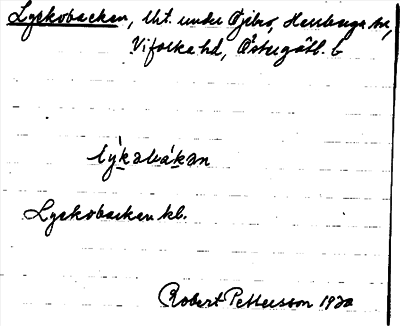 Lyckobacken, lht. under Gjibo, Herrberga sn,
Vifolka hd, Östergötl. b
lýkabákan
Lyckobacken kb.
Robert Pettersson 1930